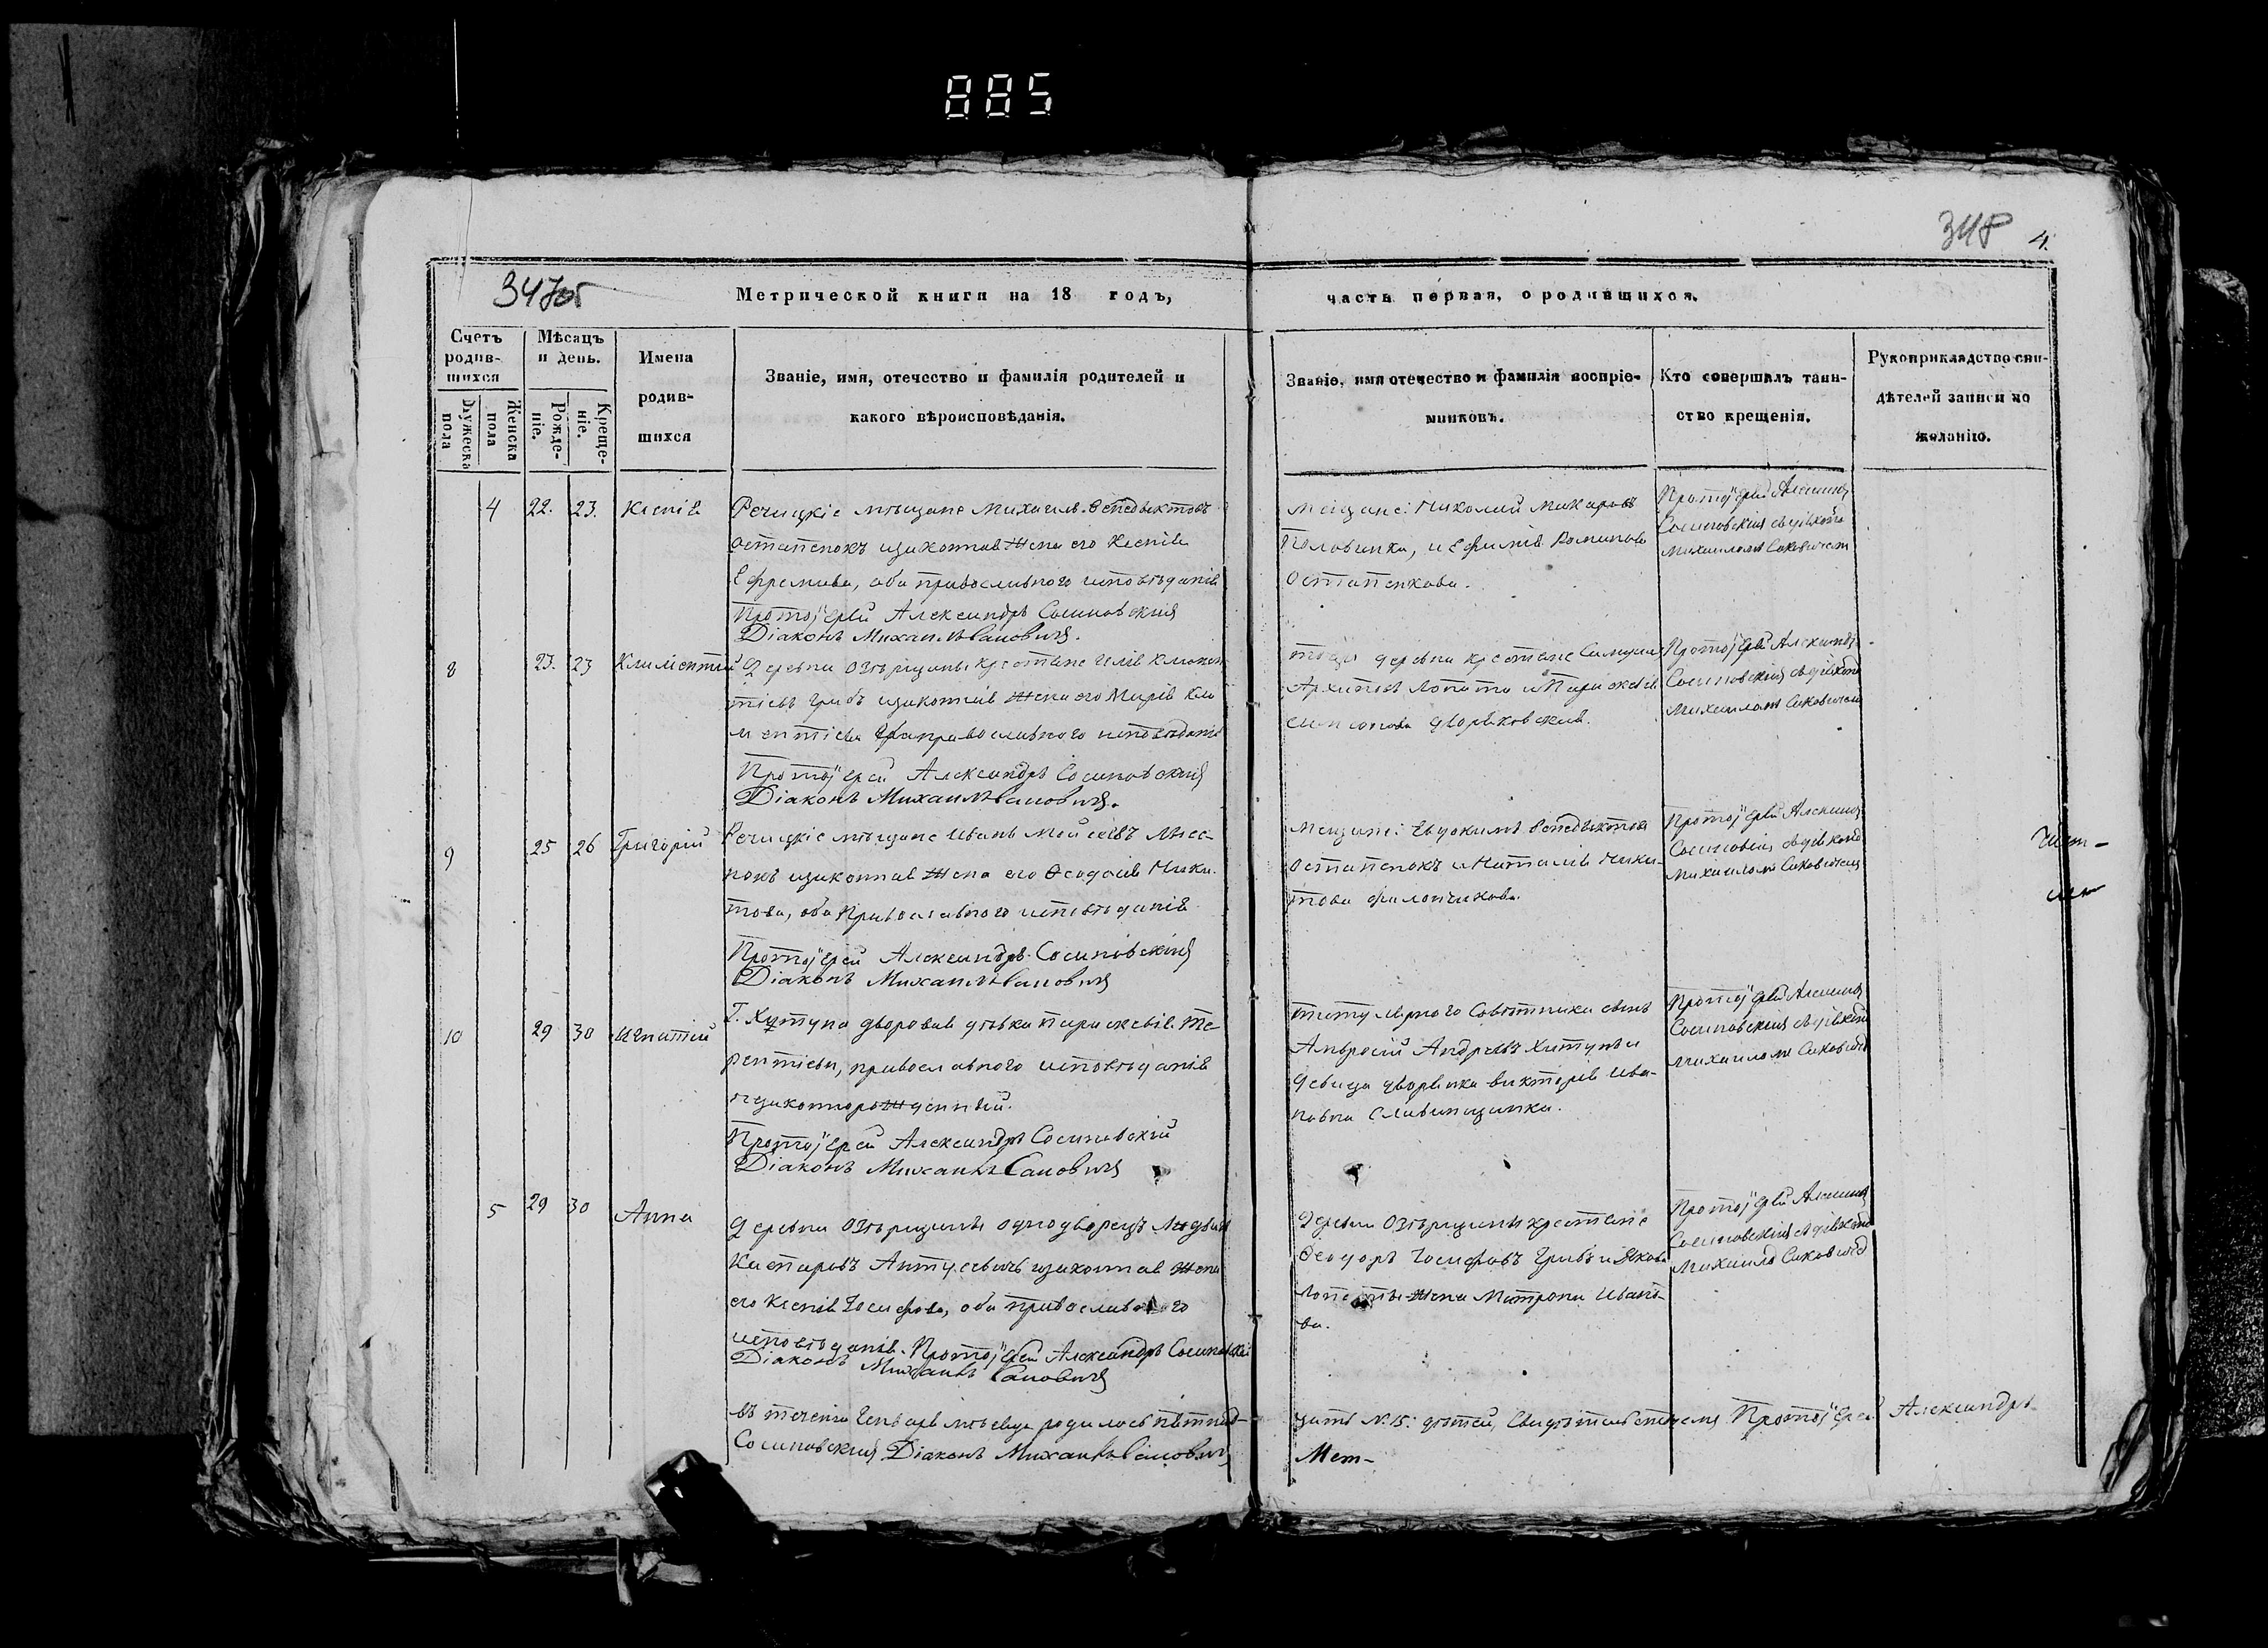 885
348 4.
347об
Метрической книги на 18 годъ, часть первая, о родившихся.
Счетъ родив-шихся
Мѣсяцъ и день.
Имена родив-шихся
Званіе, имя, отечество и фамилія родителей и какого вѣроисповѣданія.
Званіе, имя отечество и фамилія воспріе-мниковъ.
Кто совершалъ таин-ство крещенія.
Рукоприкладство сви-дѣтелей записи по желанію.
Мужеска пола
Женска пола
Рожде-ніе.
Креще-ніе.
4 22. 23. Ксенія
Речицкіе мѣщане Михаилъ Венедиктовъ
Остапенокъ и законная жена его Ксенія
Ефремова, оба православного исповѣданія
Протоіерей Александръ Сосиновскій
Діаконъ Михаилъ Саковичъ.
Мещане: Николай Макаровъ
Половинка, и Ефимія
Остапенкова.
Протоіерей Александръ
Сосиновскій съ діакономъ
Михаиломъ Саковичемъ
8 23. 23 Климентій
Деревни Озерщины крестьяне Илія Климен
тіевъ Грибъ и законная жена его Марія Кли
ментіева оба православного исповѣданія
Протоіерей Александръ Сосиновскій
Діаконъ Михаилъ Саковичъ.
тоей деревни крестьяне
Архиповъ Лопата и Параскевія
Симонова Дворяковская.
Протоіерей Александръ
Сосиновскій съ діакономъ
Михаиломъ Саковичемъ
9 25 26 Григорій
Речицкіе мѣщане Иванъ Моисеевъ
нокъ и законная жена его Ѳеодосія Ники-
това, оба Православного исповѣданія
Протоіерей Александръ Сосиновскій
Діаконъ Михаилъ Саковичъ
Мещане: Евдокимъ Венедиктовъ
Остапенокъ и Наталія Ники-
това Филончикова.
Протоіерей Александръ
Сосиновскій съ діакономъ
Михаиломъ Саковичемъ
10 29 30 Игнатій
Г. Хутуна дворовая дѣвка Параскевія Те-
рентіева, православного исповѣданія
незаконнорожденный.
Протоіерей Александръ Сосиновскій
Діаконъ Михаилъ Саковичъ
титулярного Совѣтника сынъ
Амвросій Андреевъ Хутунъ и
девица дворянка Викторія Ива-
новна
Протоіерей Александръ
Сосиновскій съ діакономъ
Михаиломъ Саковичемъ
5 29 30 Анна
Деревни Озерщины однодворецъ Людвигъ
Каспаровъ Антусевичъ и законная жена
его Ксенія Іосифова, оба православного
исповѣданія. Протоіерей Александръ Сосиновскій
Діаконъ Михаилъ Саковичъ
Деревни Озерщины крестьяне
Ѳеодоръ Іосифовъ Грибъ и Якова
Лопаты жена Матрона Ивано-
ва.
Протоіерей Александръ
Сосиновскій съ діакономъ
Михаилъ Саковичъ
въ теченіи Генваря мѣсяца родилось пятнад-
цать №15: дѣтей, Свидѣтельствуемъ Протоіерей Александръ
Сосиновскій Діаконъ Михаилъ Саковичъ
Мет-